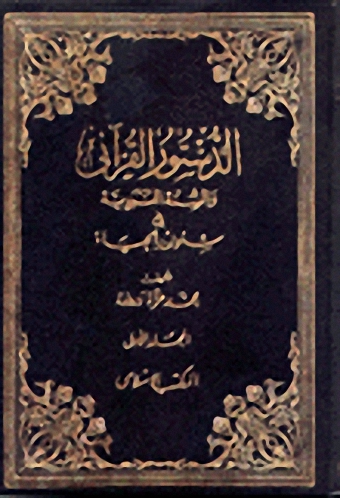 الدستور القرآني
والسنة النبوية
في
شؤون الحياة
محمد عزة دروزة
المجلد الأول
المكتب الإسلامي